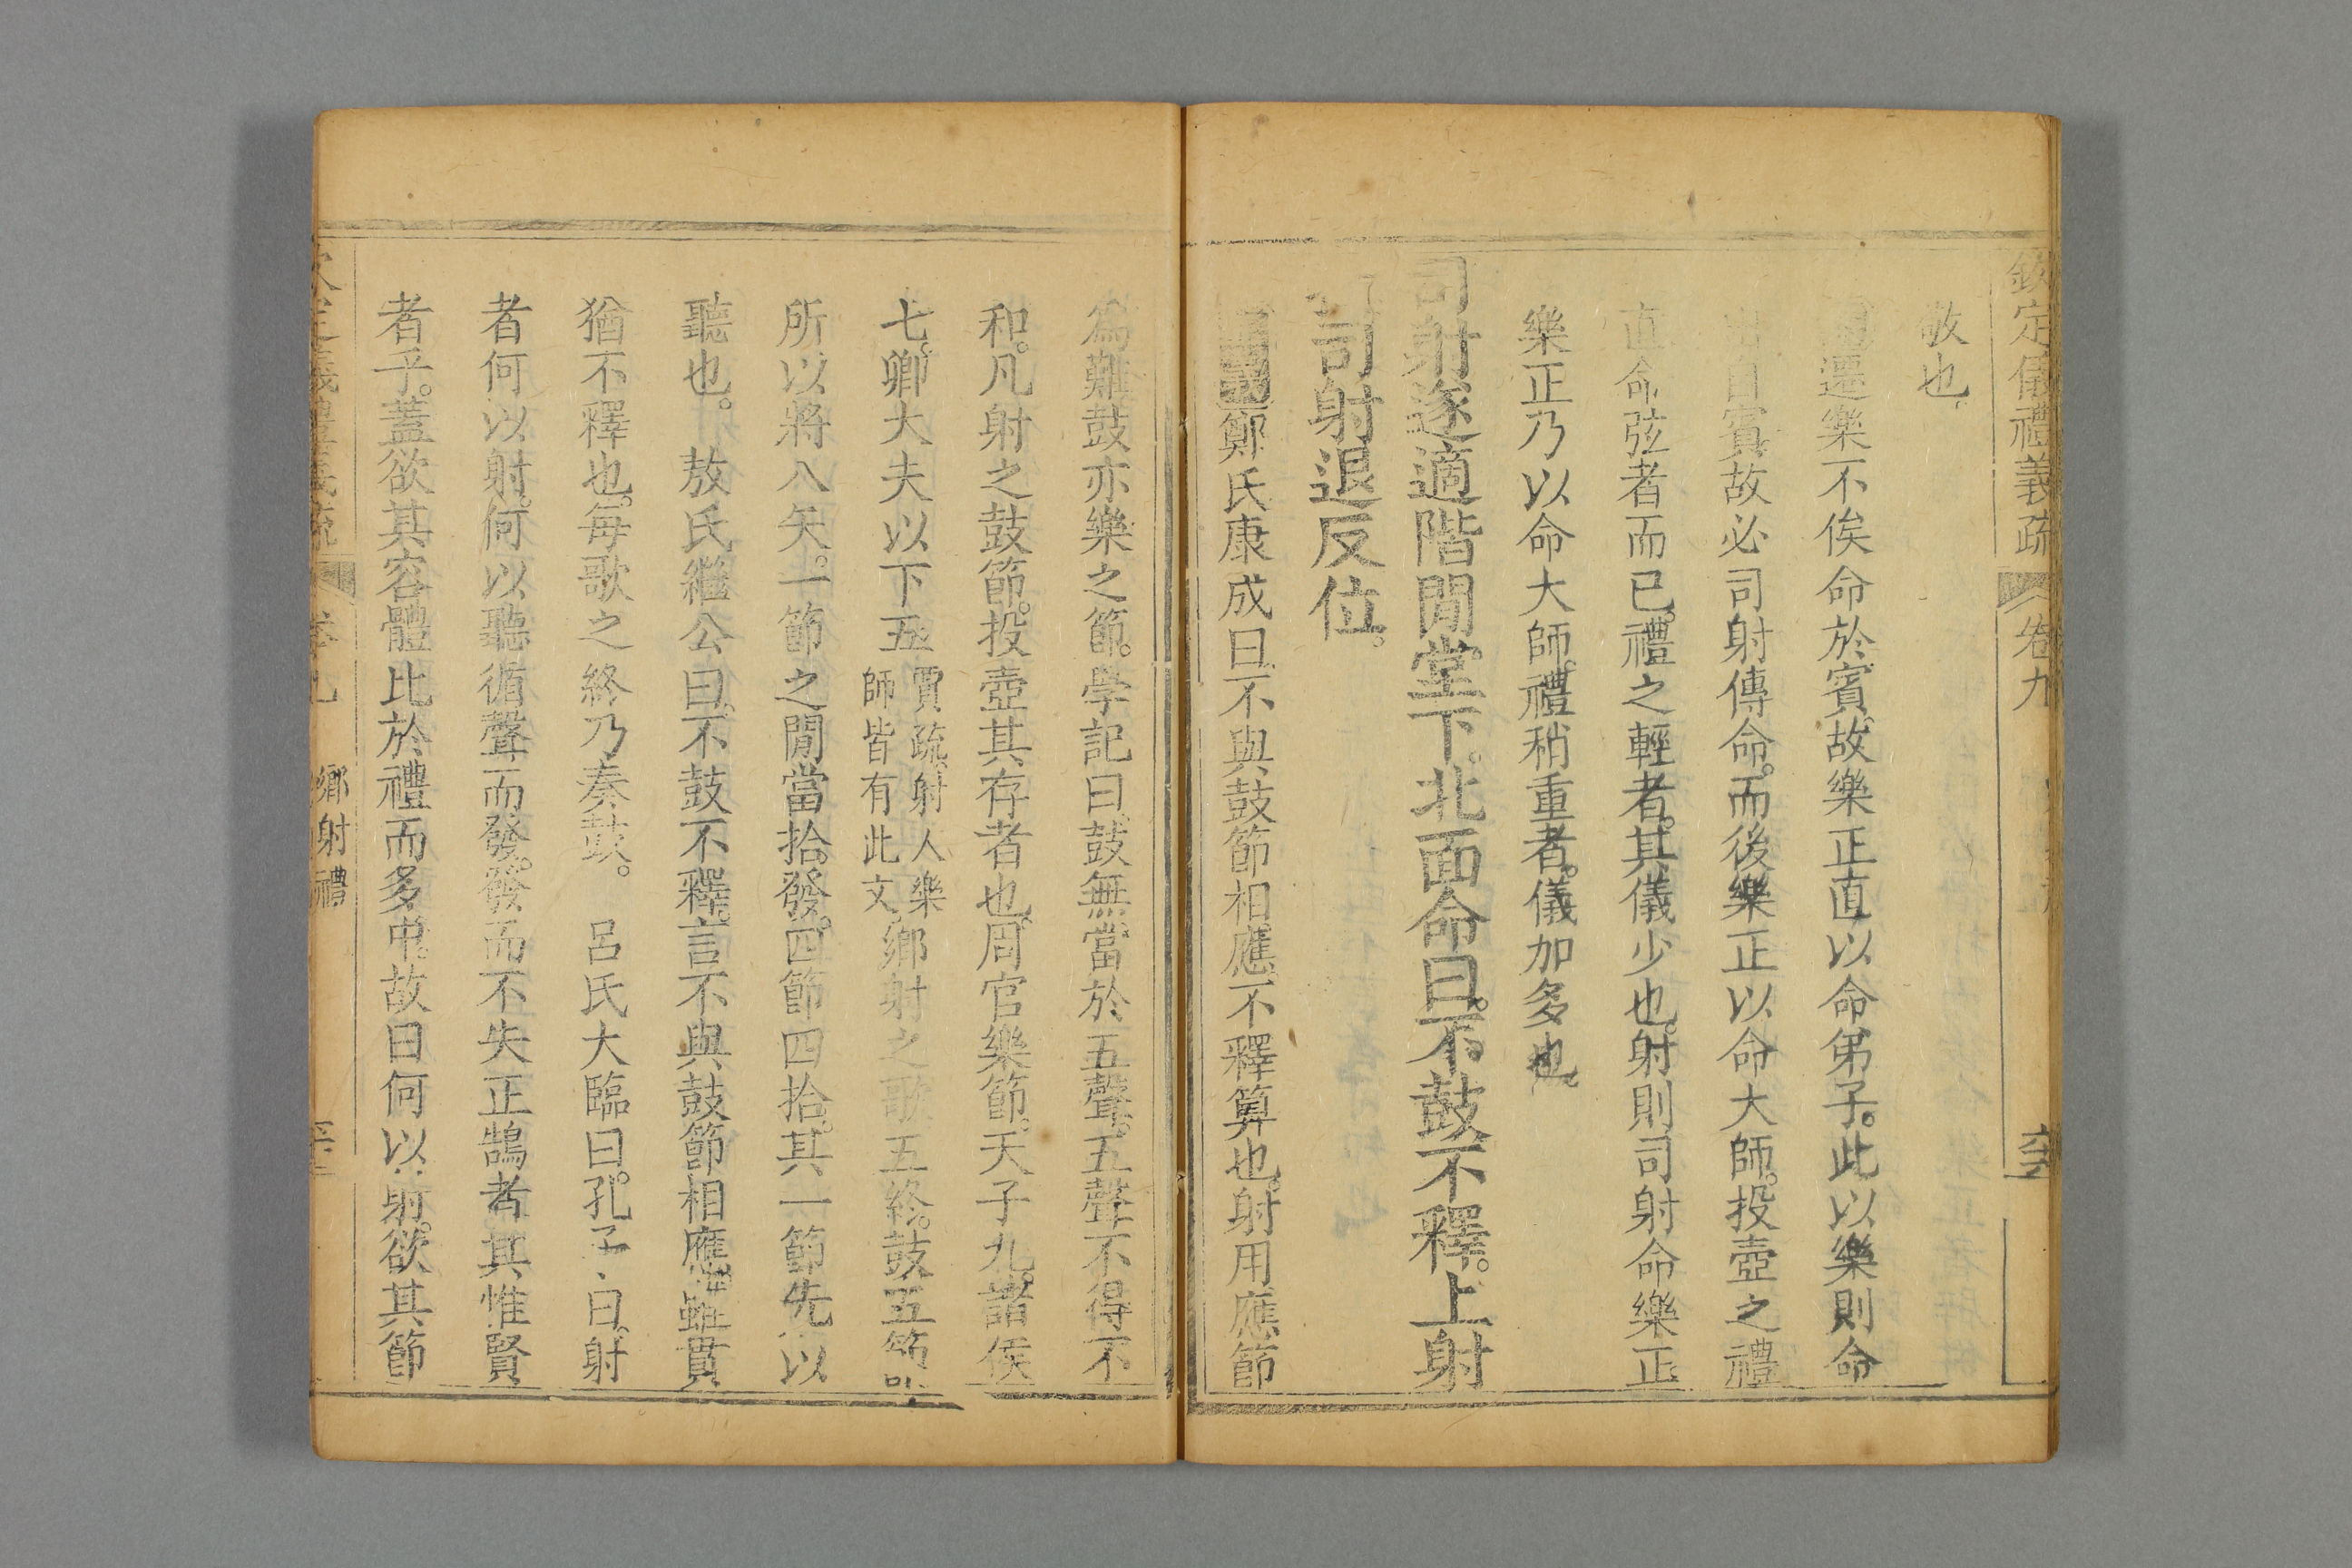 欽定儀禮義疏 卷九
敬也。
還樂不俟命於賓。故樂正直以命弟子。此以樂則命
自賓。故必司射傳命。而後樂正以命大師。投壺之禮
直命弦者而已。禮之輕者。其儀少也。射則司射命樂正
樂正乃以命大師。禮稍重者。儀加多也。
司射遂適階閒。堂下。北面命曰。不鼓不釋。上射
司射退反位。
鄭氏康成曰。不與鼓節相應。不釋算也。射用應節
為難。鼓亦樂之節。學記曰。鼓無當於五聲。五聲不得不
和。凡射之鼓節。投壺其存者也。周官樂節。天子九。諸侯
七。卿大夫以下五 賈疏。射人樂師皆有此文。 鄉射之歌五終。鼓五節
所以將八矢。一節之閒當拾發。四節四拾。其一節先以
聽也。 敖氏繼公曰。不鼓不釋。言不與鼓節相應。雖貫
猶不釋也。每歌之終乃奏鼓。 呂氏大臨曰。孔子曰。射
者何以射。何以聽。循聲而發。發而不失正鵠者。其惟賢
者乎。蓋欲其容體比於禮而多中。故曰何以射。欲其節
卷九 鄉射禮